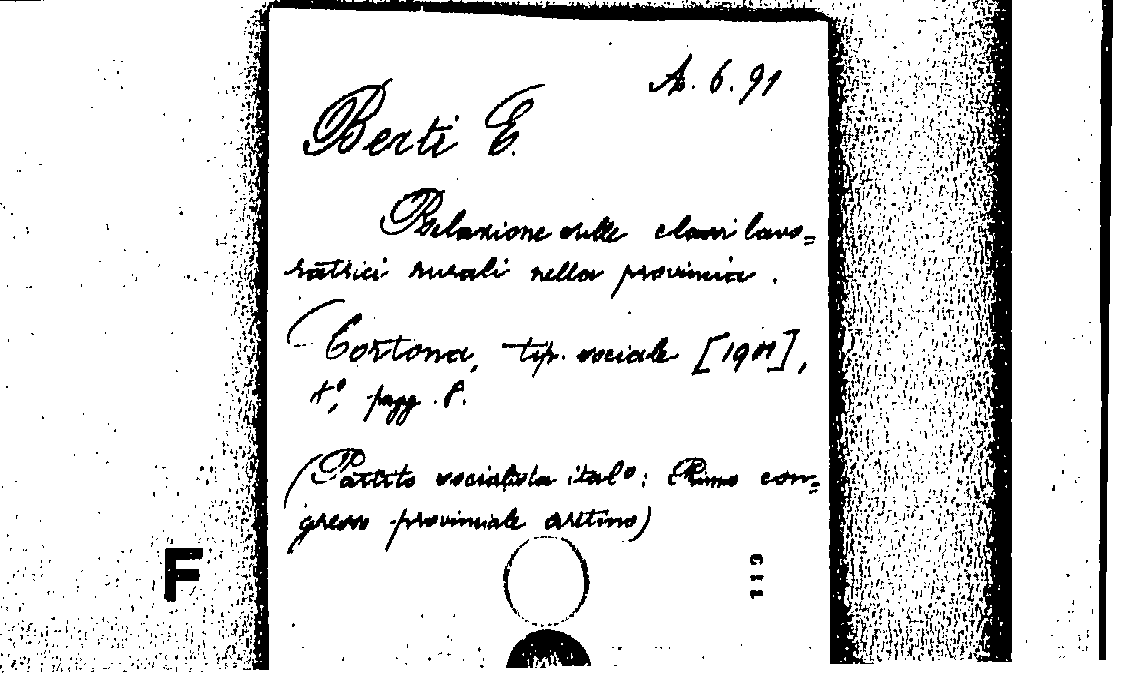 A. 6. 91
Berti E.
Relazione sulle classi lavo=
ratrici rurali nella provincia.
Cortona, tip. sociale [1901],
4°, pagg. 8.
(Partito socialista ital°: Primo con=
gresso provinciale aretino)
F
119